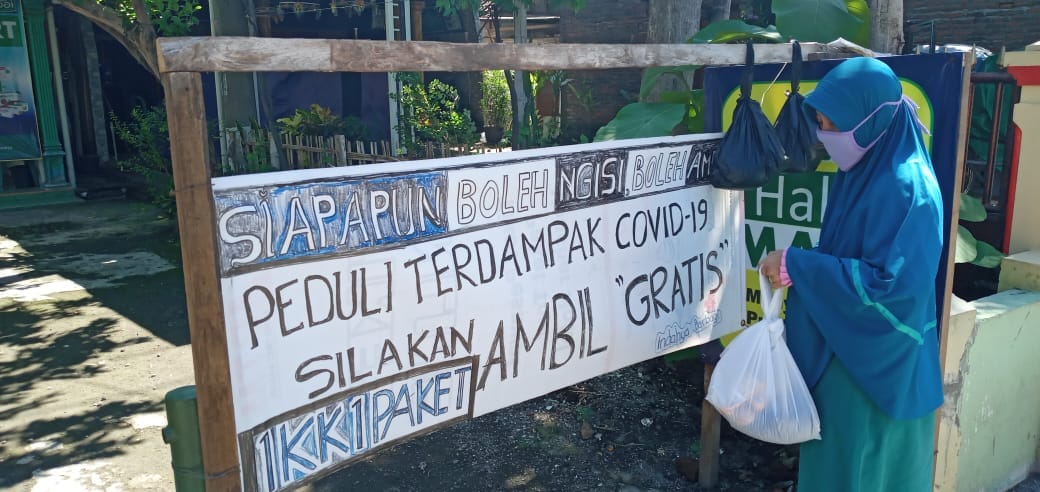 SIAPAPUN BOLEH NGISI, BOLEH AM
PEDULI TERDAMPAK COVID-19
SILAKAN AMBIL "GRATIS"
1KK1PAKET
Indahya Berbagi
Hal
MA